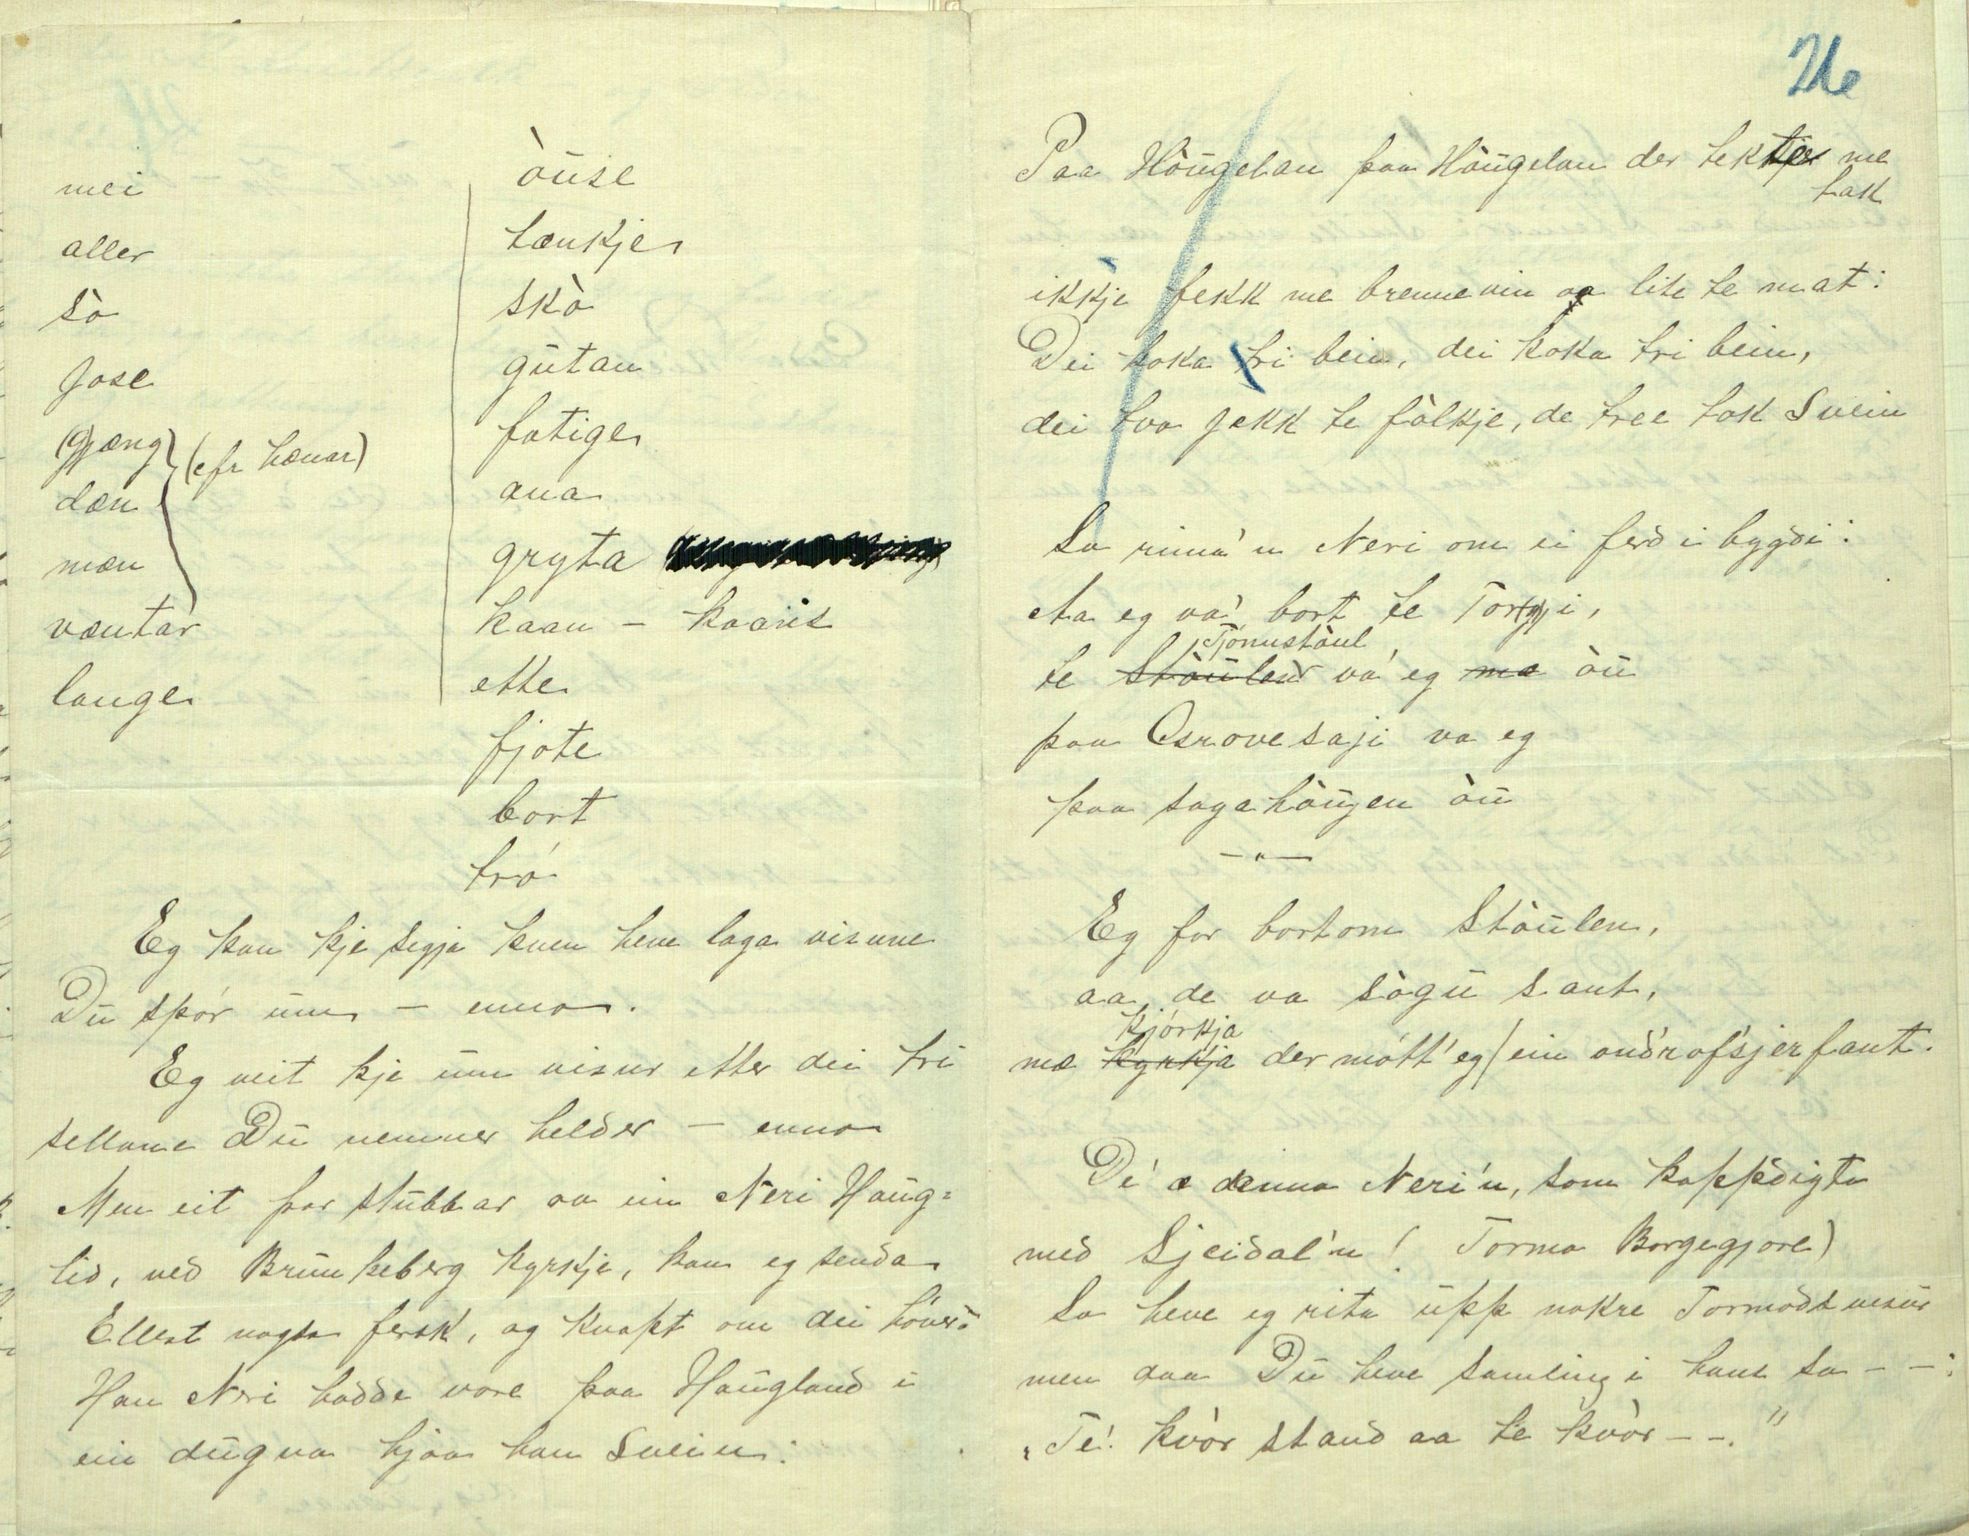 mei
aller
sò
jose
(g)jæng (cfr hænar)
dæn
mæn
væntar
lange
òuse
tænkje
skò
gutan
fatige
ana
gryta
kaan - kaans
ette
fjote
bort
tró
Eg kan kje segja kven heve laga visune
Du spór um - enno.
Eg veit kje um visur etter dei tri
sellane Du nemner helder - enno
Men eit par stubbar av ein Neri Haug-
lid, ved Brunkeberg kyrkje, kan eg senda
Ellest nogso fersk, og knapt om dei hóver.
Han Neri hadde vore paa Haugland i
ein dugna hjaa han Svein:
26
Paa Hòugelan paa Hòugelan der tek me
tak
ikkje fekk me brennevin oa lite te mat:
Dei koka tri bein, dei koka tri bein,
dei tvo jekk te fòlkje, de tree tok Svein
So rima'n Neri om ei ferd i bygdi:
Aa eg va' bort te Tor(g)ji,
Tjònnstòul
te Stòulen va' eg mæ òu
paa Osrovesaji va eg
paa sagahòugen òu
-"-
Eg for bortom Stòulen,
aa de va sògu sant,
kjórkja
mæ kyrkja der mótt' eg ein ondrofsjerfant.
De' æ denna Neri'n, som kappdigta
med Sjeidal'n (Tormo Borgegjore)
So heve eg rita upp nokre Tormodsvisur
men daa Du heve samling i hans so - - :
„Te! kvòr stand aa te kvòr - -."